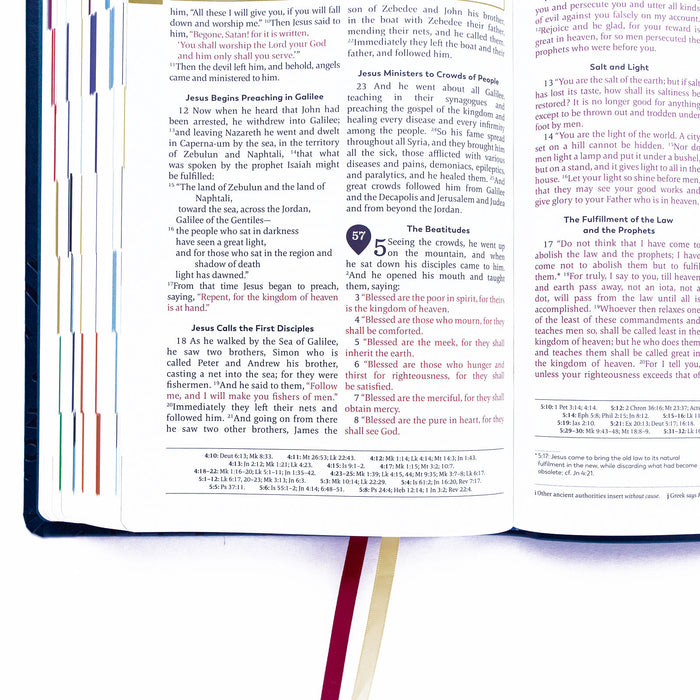 him, "All these I will give you, if you will fall
down and worship me." ¹⁰Then Jesus said to
him, "Begone, Satan! for it is written,
'You shall worship the Lord your God
and him only shall you serve.'"
¹¹Then the devil left him, and behold, angels
came and ministered to him.
Jesus Begins Preaching in Galilee
12 Now when he heard that John had
been arrested, he withdrew into Galilee;
¹³and leaving Nazareth he went and dwelt
in Caperna-um by the sea, in the territory
of Zebulun and Naphtali, ¹⁴that what
was spoken by the prophet Isaiah might
be fulfilled:
¹⁵ "The land of Zebulun and the land of
Naphtali,
toward the sea, across the Jordan,
Galilee of the Gentiles—
¹⁶ the people who sat in darkness
have seen a great light,
and for those who sat in the region and
shadow of death
light has dawned."
¹⁷From that time Jesus began to preach,
saying, "Repent, for the kingdom of heaven
is at hand."
Jesus Calls the First Disciples
18 As he walked by the Sea of Galilee,
he saw two brothers, Simon who is
called Peter and Andrew his brother,
casting a net into the sea; for they were
fishermen. ¹⁹And he said to them, "Follow
me, and I will make you fishers of men."
²⁰Immediately they left their nets and
followed him. ²¹And going on from there
he saw two other brothers, James the
son of Zebedee and John his brother,
in the boat with Zebedee their father,
mending their nets, and he called them.
²²Immediately they left the boat and their
father, and followed him.
Jesus Ministers to Crowds of People
23 And he went about all Galilee,
teaching in their synagogues and
preaching the gospel of the kingdom and
healing every disease and every infirmity
among the people. ²⁴So his fame spread
throughout all Syria, and they brought him
all the sick, those afflicted with various
diseases and pains, demoniacs, epileptics,
and paralytics, and he healed them. ²⁵And
great crowds followed him from Galilee
and the Decapolis and Jerusalem and Judea
and from beyond the Jordan.
The Beatitudes
57
5 Seeing the crowds, he went up
on the mountain, and when
he sat down his disciples came to him.
²And he opened his mouth and taught
them, saying:
3 "Blessed are the poor in spirit, for theirs
is the kingdom of heaven.
4 "Blessed are those who mourn, for they
shall be comforted.
5 "Blessed are the meek, for they shall
inherit the earth.
6 "Blessed are those who hunger and
thirst for righteousness, for they shall
be satisfied.
7 "Blessed are the merciful, for they shall
obtain mercy.
8 "Blessed are the pure in heart, for they
shall see God.
4:10: Deut 6:13; Mk 8:33. 4:11: Mt 26:53; Lk 22:43. 4:12: Mk 1:14; Lk 4:14; Mt 14:3; Jn 1:43.
4:13: Jn 2:12; Mk 1:21; Lk 4:23. 4:15: Is 9:1–2. 4:17: Mk 1:15; Mt 3:2; 10:7.
4:18–22: Mk 1:16–20; Lk 5:1–11; Jn 1:35–42. 4:23–25: Mk 1:39; Lk 4:15, 44; Mt 9:35; Mk 3:7–8; Lk 6:17.
5:1–12: Lk 6:17, 20–23; Mk 3:13; Jn 6:3. 5:3: Mk 10:14; Lk 22:29. 5:4: Is 61:2; Jn 16:20; Rev 7:17.
5:5: Ps 37:11. 5:6: Is 55:1–2; Jn 4:14; 6:48–51. 5:8: Ps 24:4; Heb 12:14; 1 Jn 3:2; Rev 22:4.
you and persecute you and utter all kinds
of evil against you falsely on my account.
¹²Rejoice and be glad, for your reward is
great in heaven, for so men persecuted the
prophets who were before you.
Salt and Light
13 "You are the salt of the earth; but if salt
has lost its taste, how shall its saltiness be
restored? It is no longer good for anything
except to be thrown out and trodden under
foot by men.
14 "You are the light of the world. A city
set on a hill cannot be hidden. ¹⁵Nor do
men light a lamp and put it under a bushel,
but on a stand, and it gives light to all in the
house. ¹⁶Let your light so shine before men,
that they may see your good works and
give glory to your Father who is in heaven.
The Fulfillment of the Law
and the Prophets
17 "Do not think that I have come to
abolish the law and the prophets; I have
come not to abolish them but to fulfil
them.* ¹⁸For truly, I say to you, till heaven
and earth pass away, not an iota, not a
dot, will pass from the law until all is
accomplished. ¹⁹Whoever then relaxes one
of the least of these commandments and
teaches men so, shall be called least in the
kingdom of heaven; but he who does them
and teaches them shall be called great in
the kingdom of heaven. ²⁰For I tell you,
unless your righteousness exceeds that of
5:10: 1 Pet 3:14; 4:14. 5:12: 2 Chron 36:16; Mt 23:37;
5:14: Eph 5:8; Phil 2:15; Jn 8:12. 5:15–16: Lk
5:19: Jas 2:10. 5:21: Ex 20:13; Deut 5:17; 16:18.
5:29–30: Mk 9:43–48; Mt 18:8–9. 5:31–32: Lk
* 5:17: Jesus came to bring the old law to its natural
fulfilment in the new, while discarding what had become
obsolete: cf. Jn 4:21.
i Other ancient authorities insert without cause. j Greek says